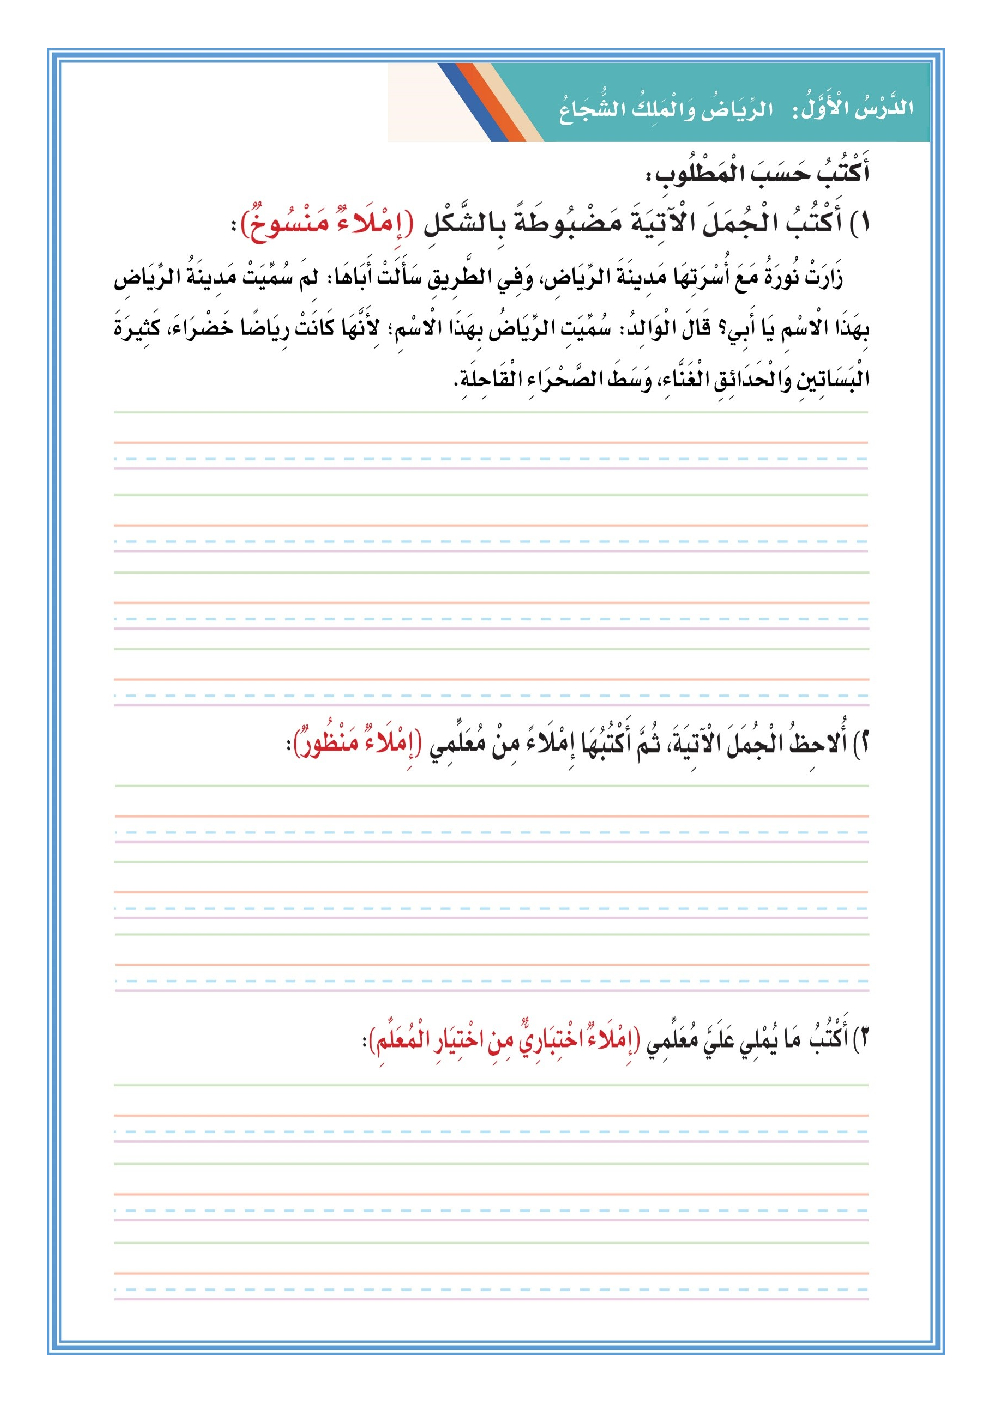 الدَّرْسُ الْأَوَّلُ: الرِّيَاضُ وَالْمَلِكُ الشُّجَاعُ
أَكْتُبُ حَسَبَ الْمَطْلُوبِ:
١) أَكْتُبُ الْجُمَلَ الْآتِيَةَ مَضْبُوطَةً بِالشَّكْلِ (إِمْلَاءٌ مَنْسُوخٌ):
زَارَتْ نُورَةُ مَعَ أُسْرَتِهَا مَدِينَةَ الرِّيَاضِ، وَفِي الطَّرِيقِ سَأَلَتْ أَبَاهَا: لِمَ سُمِّيَتْ مَدِينَةُ الرِّيَاضِ
بِهَذَا الْاسْمِ يَا أَبِي؟ قَالَ الْوَالِدُ: سُمِّيَتِ الرِّيَاضُ بِهَذَا الْاسْمِ؛ لِأَنَّهَا كَانَتْ رِيَاضًا خَضْرَاءَ، كَثِيرَةَ
الْبَسَاتِينِ وَالْحَدَائِقِ الْغَنَّاءِ، وَسَطَ الصَّحْرَاءِ الْقَاحِلَةِ.
٢) أُلاحِظُ الْجُمَلَ الْآتِيَةَ، ثُمَّ أَكْتُبُهَا إِمْلَاءً مِنْ مُعَلِّمِي (إِمْلَاءٌ مَنْظُورٌ):
٣) أَكْتُبُ مَا يُمْلِي عَلَيَّ مُعَلِّمِي (إِمْلَاءٌ اخْتِبَارِيٌّ مِنِ اخْتِيَارِ الْمُعَلِّمِ):